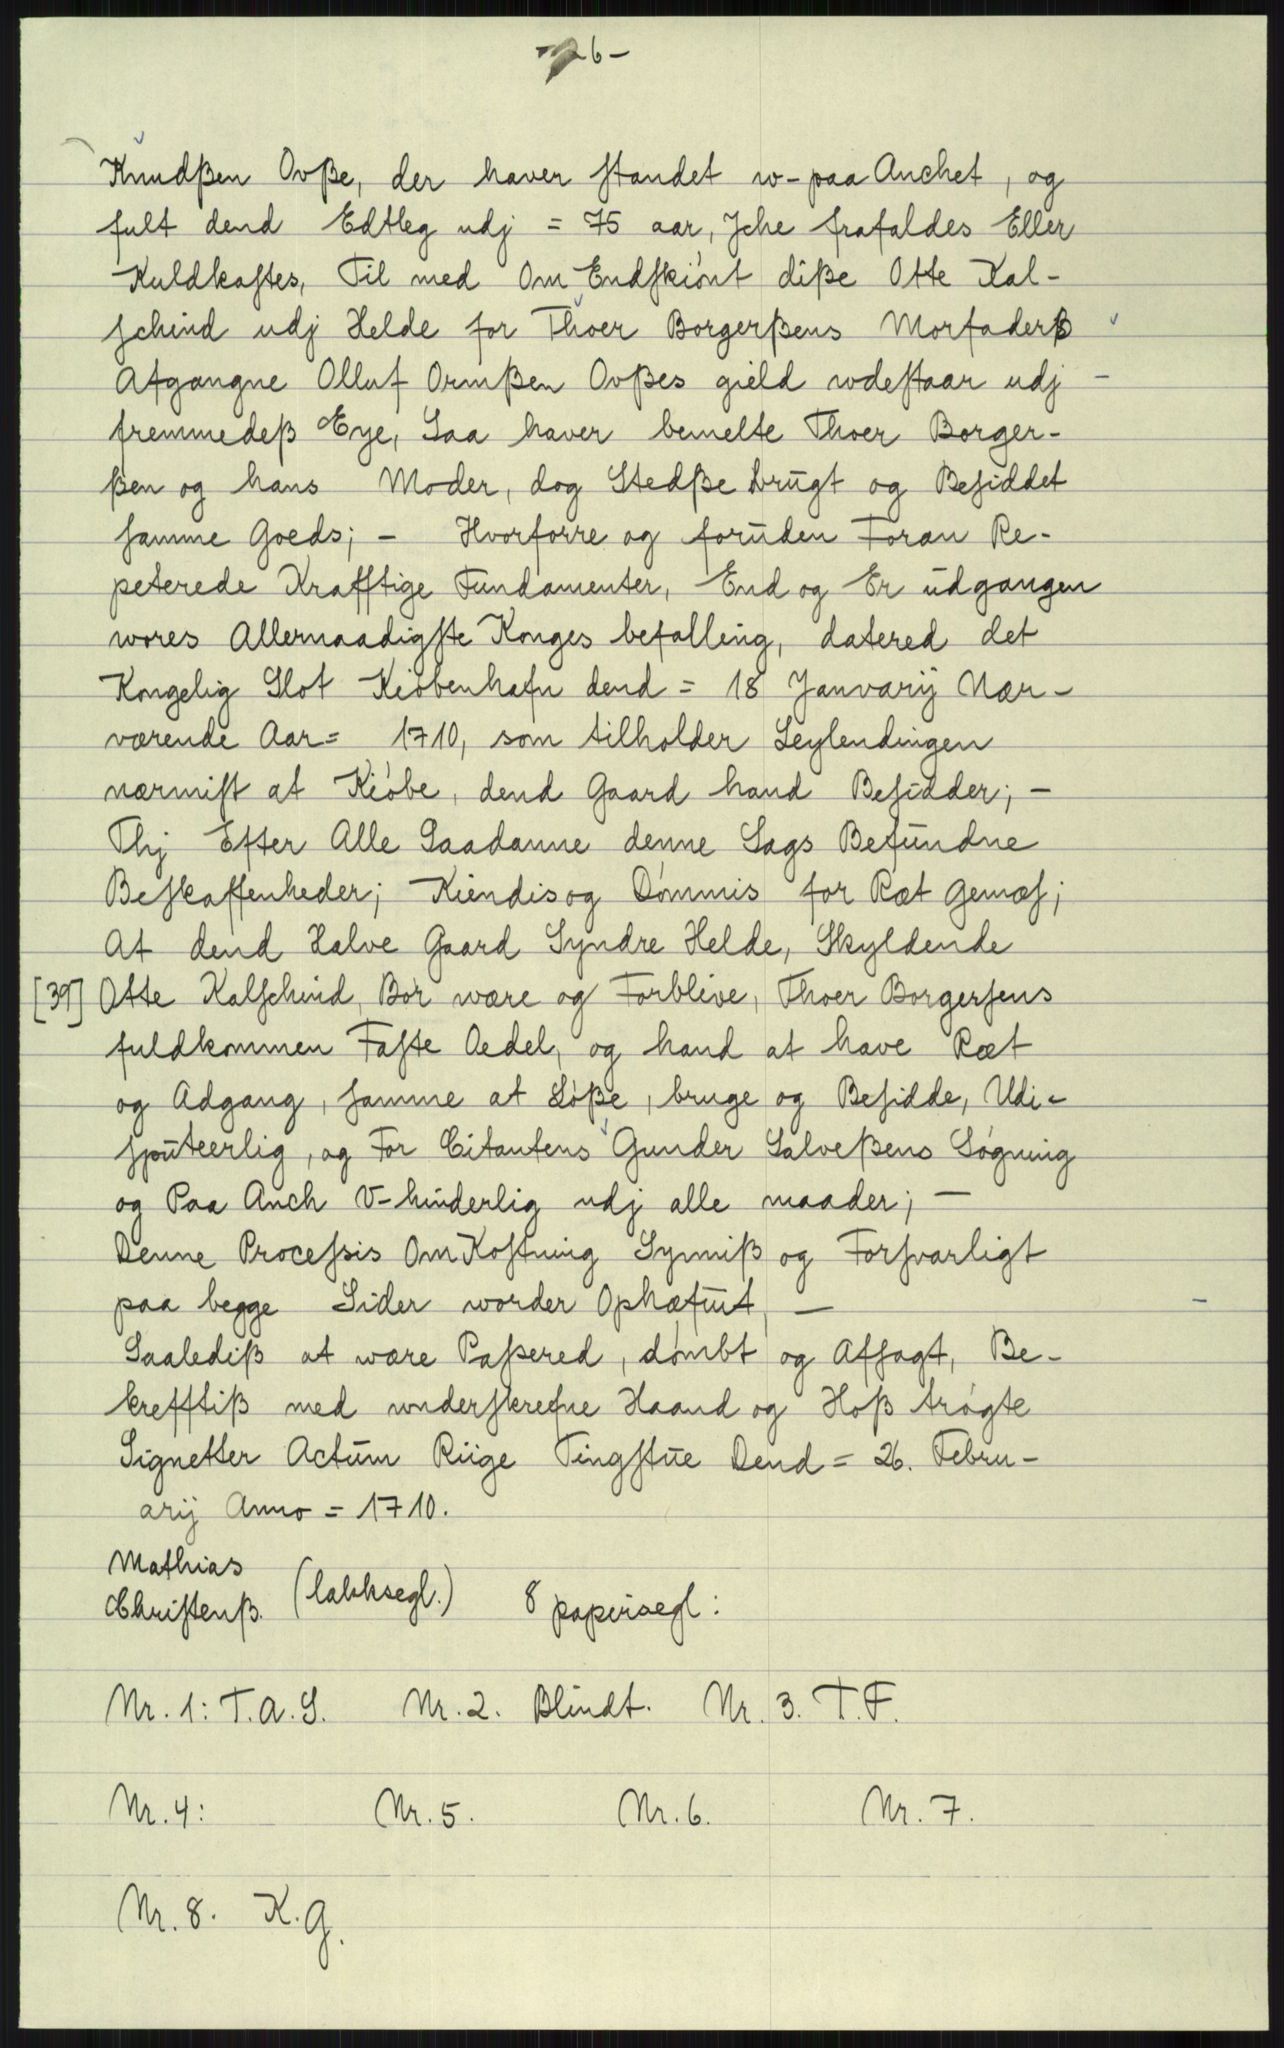 -26-
Knudßen Ovße, der haver standet w-paa Anchet, og
fult dend Edtleg udj = 75 aar, Jche frafaldes Eller
Kuldkastes, Til med Om Endskiónt diße Otte Kal-
schind udj Helde for Thoer Borgerßens Morfaderß
Afgangne Olluf Ormßen Ovßes gield wdestaar udj
fremmedeß Eye, Saa haver bemelte Thoer Borger-
ßen og hans Moder, dog Stedße brugt og Besiddet
samme Goeds; - Hvorforre og foruden Foran Re-
peterede Krafftige Fundamenter, End og Er udgangen
wores Allernaadigste Konges befalling, datered det
Kongelig Slot Kióbenhafn dend = 18 Janvarij Nær-
værende Aar= 1710, som tilholder Leylendingen
nærmist at Kióbe, dend Gaard hand Besidder; -
Thj Efter Alle Saadanne denne Sags Befundne
Beskaffenheder; Kiendis og Dómmis for Ræt Gemæs;
At dend Halve Gaard Syndre Helde, Skyldende
[39] Otte Kalschind, Bór være og Forblive, Thoer Borgersens
fuldkommen Faste Oedel, og hand at have Ræt
og Adgang, samme at Lóße, bruge og Besidde, Udi-
sputeerlig, og For Citantens Gunder Salveßens Sógning
og Paa Anch V-hinderlig udj alle maader; -
Denne Processis Om Kostning Synniß og Forsvarligt
paa begge Sider worder Ophæfuit, -
Saalediß at være Paßered, dómbt og Afsagt, Be-
krefftiß med underskrefne Haand og Hoß trógte
Signetter Actum Riige Tingstue Dend = 26. Febru-
arij Anno = 1710.
Mathias
Christenß. (lakksegl.) 8 papirsegl:
Nr. 1: T.A.S. Nr. 2. Blindt. Nr. 3. T.F.
Nr. 4: Nr. 5. Nr. 6. Nr. 7.
Nr. 8. K.G.